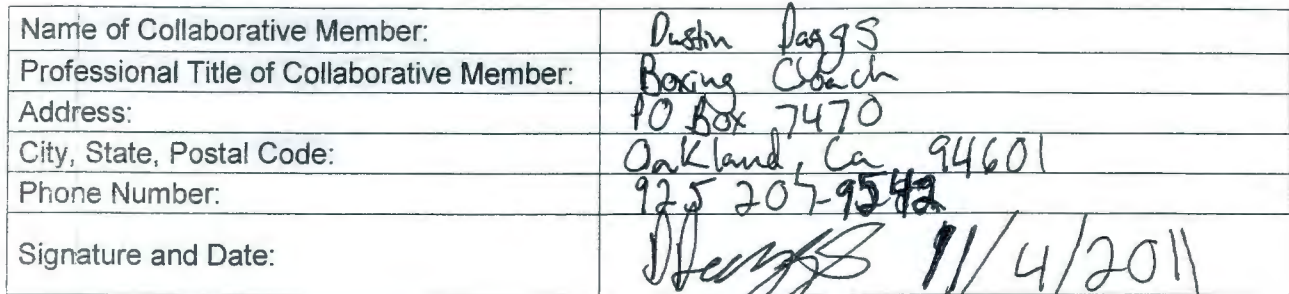 Name of Collaborative Member: Dustin Daggs
Professional Title of Collaborative Member: Boxing Coach
Address: PO Box 7470
City, State, Postal Code: Oakland, Ca 94601
Phone Number: 925 207-9542
Signature and Date: 11/4/2011